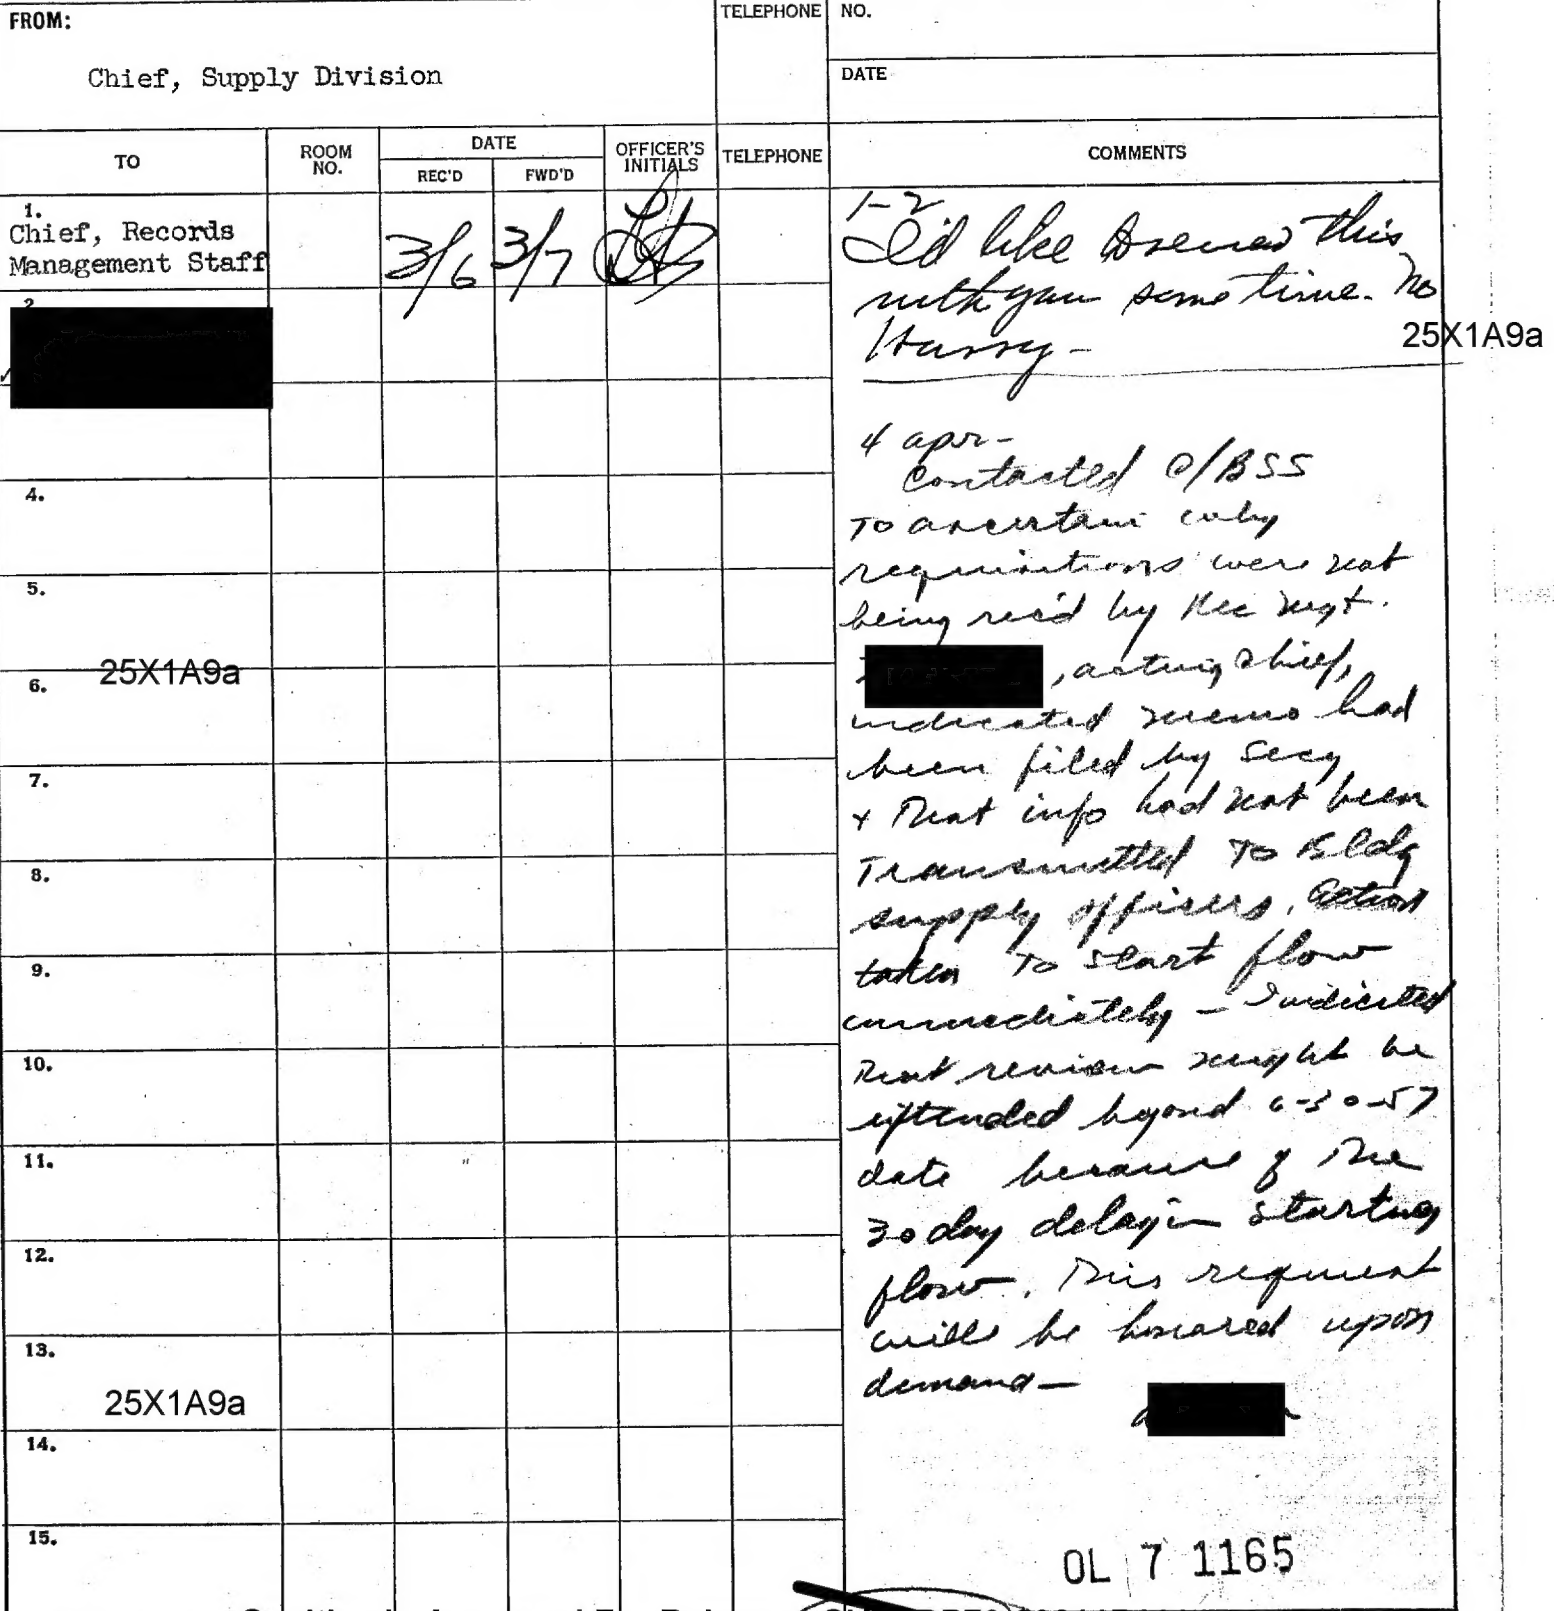 FROM:
TELEPHONE
NO.
Chief, Supply Division
DATE
TO
ROOM NO.
DATE
REC'D
FWD'D
OFFICER'S INITIALS
TELEPHONE
COMMENTS
1.
Chief, Records
Management Staff
3/6
3/7
1-2
I'd like to this
with you some time. No
Harry-
25X1A9a
2
4 apr-
Contacted C/BSS
To ascertain why
requisitions were not
being rec'd by Rec Mgt.
, acting chief,
indicated memo had
been filed by secy
+ that info had not been
Transmitted To Bldg
supply officers. Action
taken To start flow
immediately - Indicated
that review might be
extended beyond 6-30-57
date because of the
30 day delay in starting
flow. This request
will be honored upon
demand-
4.
5.
25X1A9a
6.
7.
8.
9.
10.
11.
12.
13.
25X1A9a
14.
15.
OL 7 1165